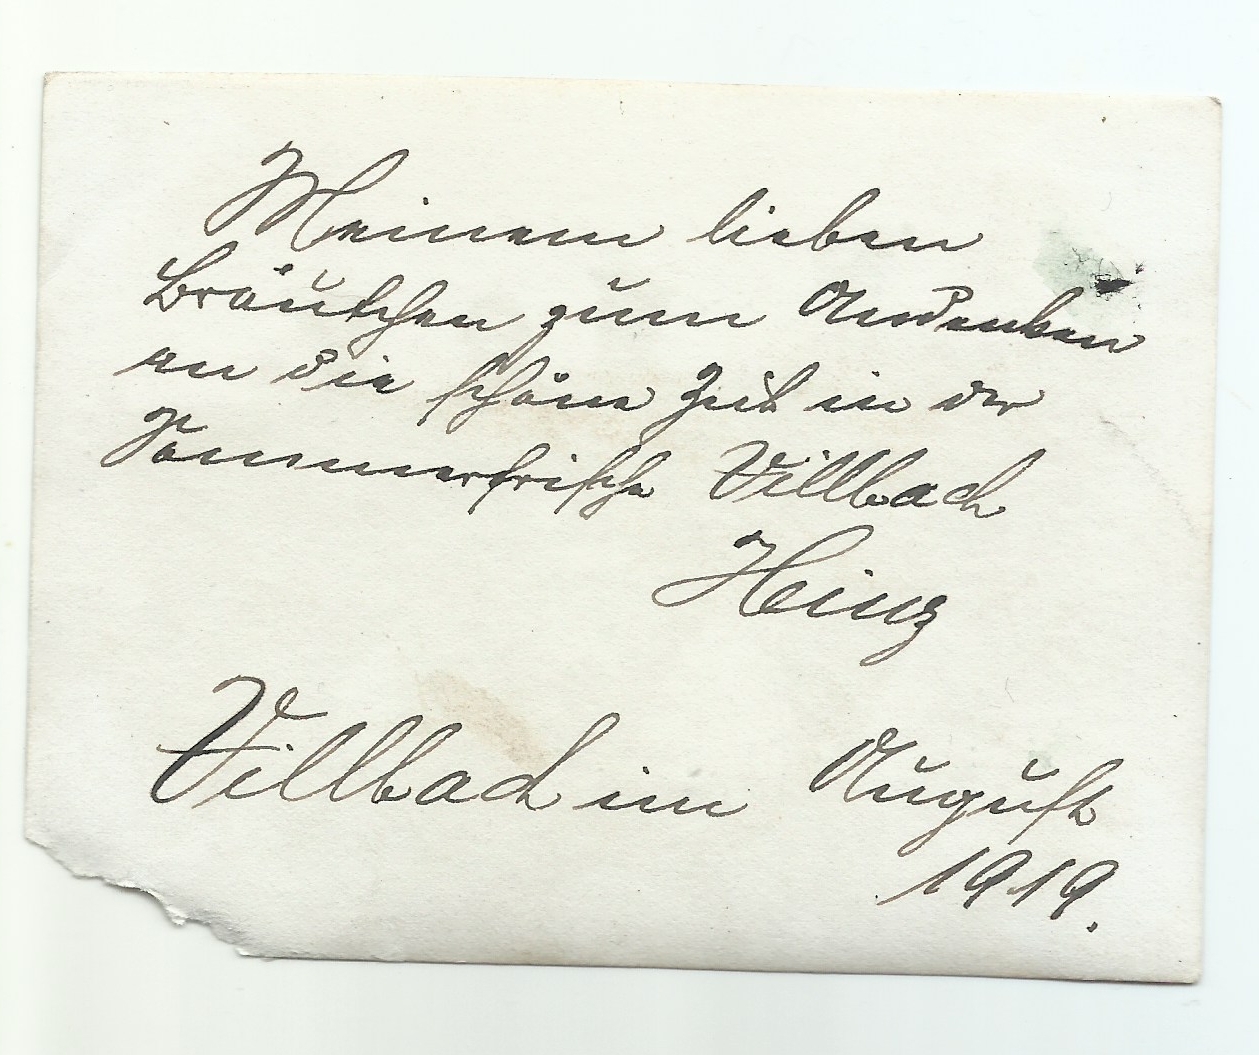 Meinem lieben
Bräutchen zum Andenken
an die schöne Zeit in der
Sommerfrische Villbach
Heinz
Villbach im August
1919.